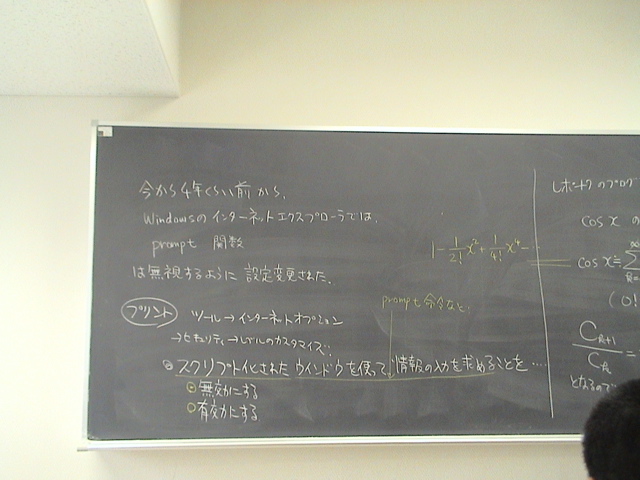 今から4年くらい前から、
Windowsのインターネットエクスプローラでは、
prompt 関数
は無視するように設定変更された。
プリント ツール→インターネットオプション
→セキュリティ→レベルのカスタマイズ…
prompt命令など、
◎スクリプト化されたウインドウを使って、情報の入力を求めることを….
無効にする
有効にする
1-1/2!x²+1/4!x⁴-…
レポートクのプログ
cos x の
cos x = ∑
(0!
Cₖ₊₁/Cₖ =
となるので…